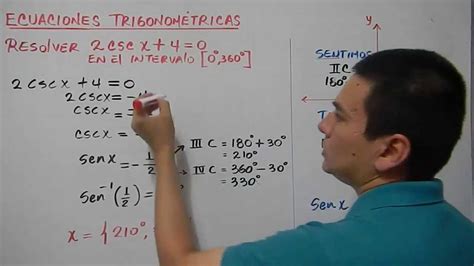 ECUACIONES TRIGONOMÉTRICAS
RESOLVER 2 csc x + 4 = 0
EN EL INTERVALO [0°, 360°]
2 csc x + 4 = 0
2 csc x = -
csc x =
csc x =
sen x = - 1/2
III C = 180° + 30°
= 210°
IV C = 360° - 30°
= 330°
sen⁻¹(1/2) =
x = { 210°,
y
SENTIMOS
II C
180°
sen x